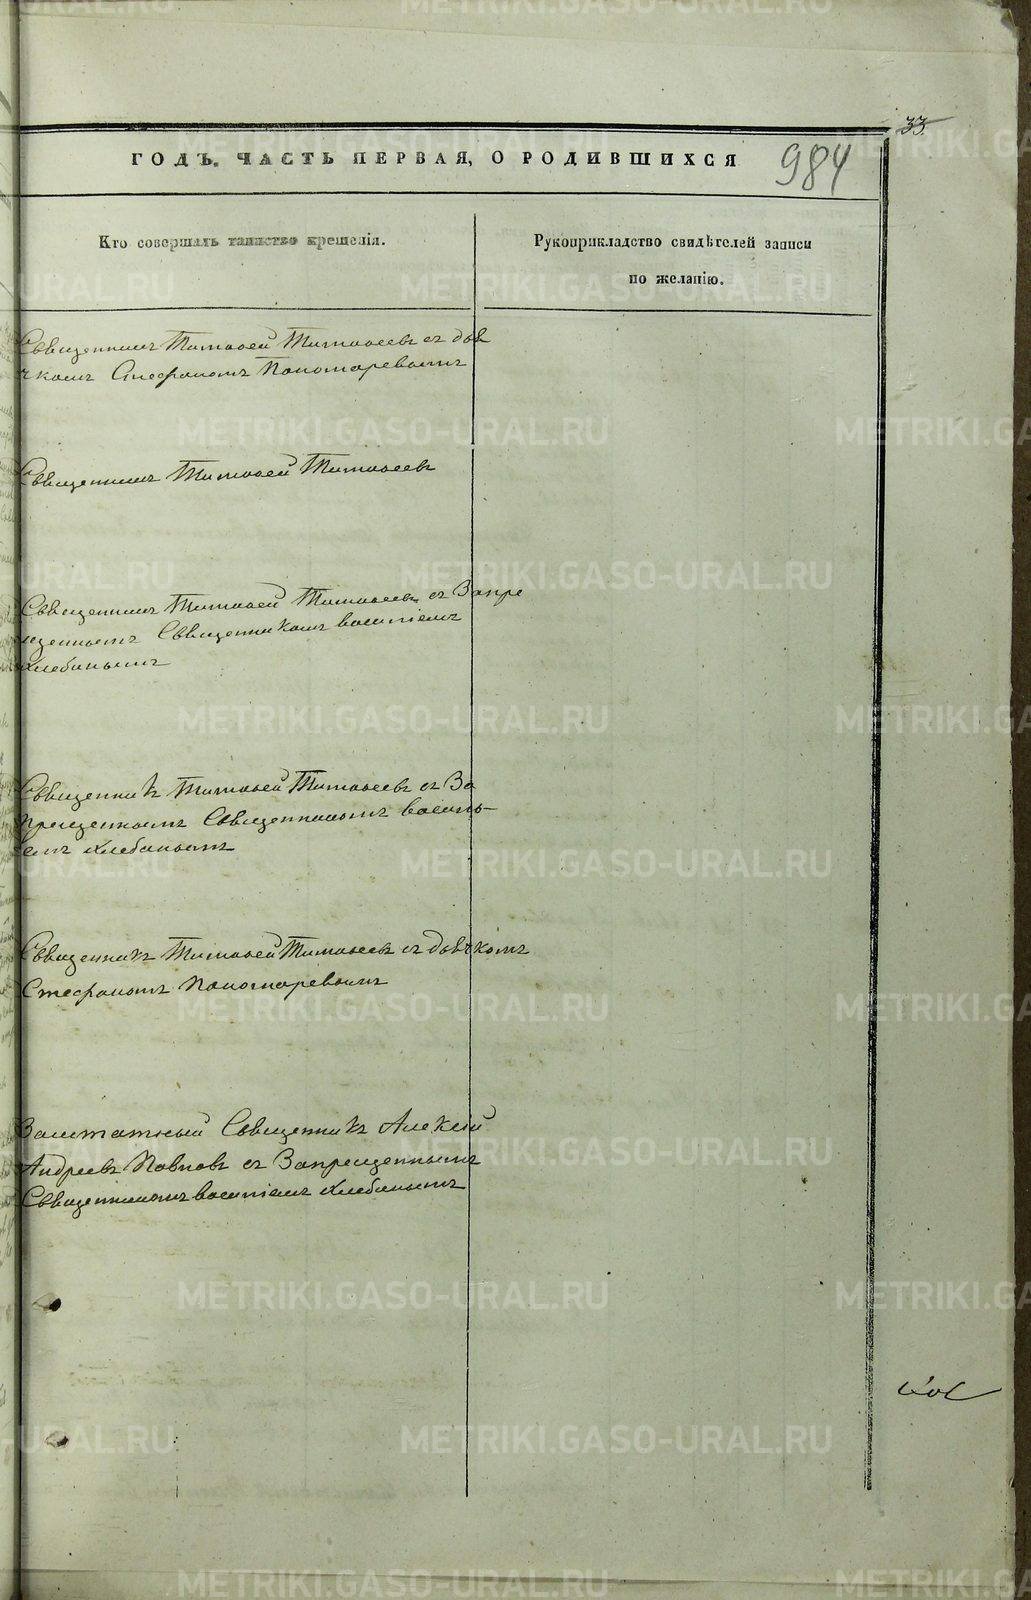 33
ГОДЪ. ЧАСТЬ ПЕРВАЯ, О РОДИВШИХСЯ
984
Кто совершалъ таинство крещенія.
Рукоприкладство свидѣтелей записи
по желанію.
Священникъ Тимоѳей Тимоѳеевъ съ дья
чкомъ Стефаномъ Пономаревымъ
Священникъ Тимоѳей Тимоѳеевъ
Священникъ Тимоѳей Тимоѳеевъ съ Запре
щеннымъ Священникомъ Василіемъ
Хлебинымъ
Священникъ Тимоѳей Тимоѳеевъ съ За
прещеннымъ Священникомъ Васил-
емъ Хлебинымъ
Священникъ Тимоѳей Тимоѳеевъ съ дьячкомъ
Стефаномъ Пономаревымъ
Заштатный Священникъ Алексій
Андреевъ съ Запрещеннымъ
Священникомъ Василіемъ Хлебинымъ
METRIKI.GASO-URAL.RU